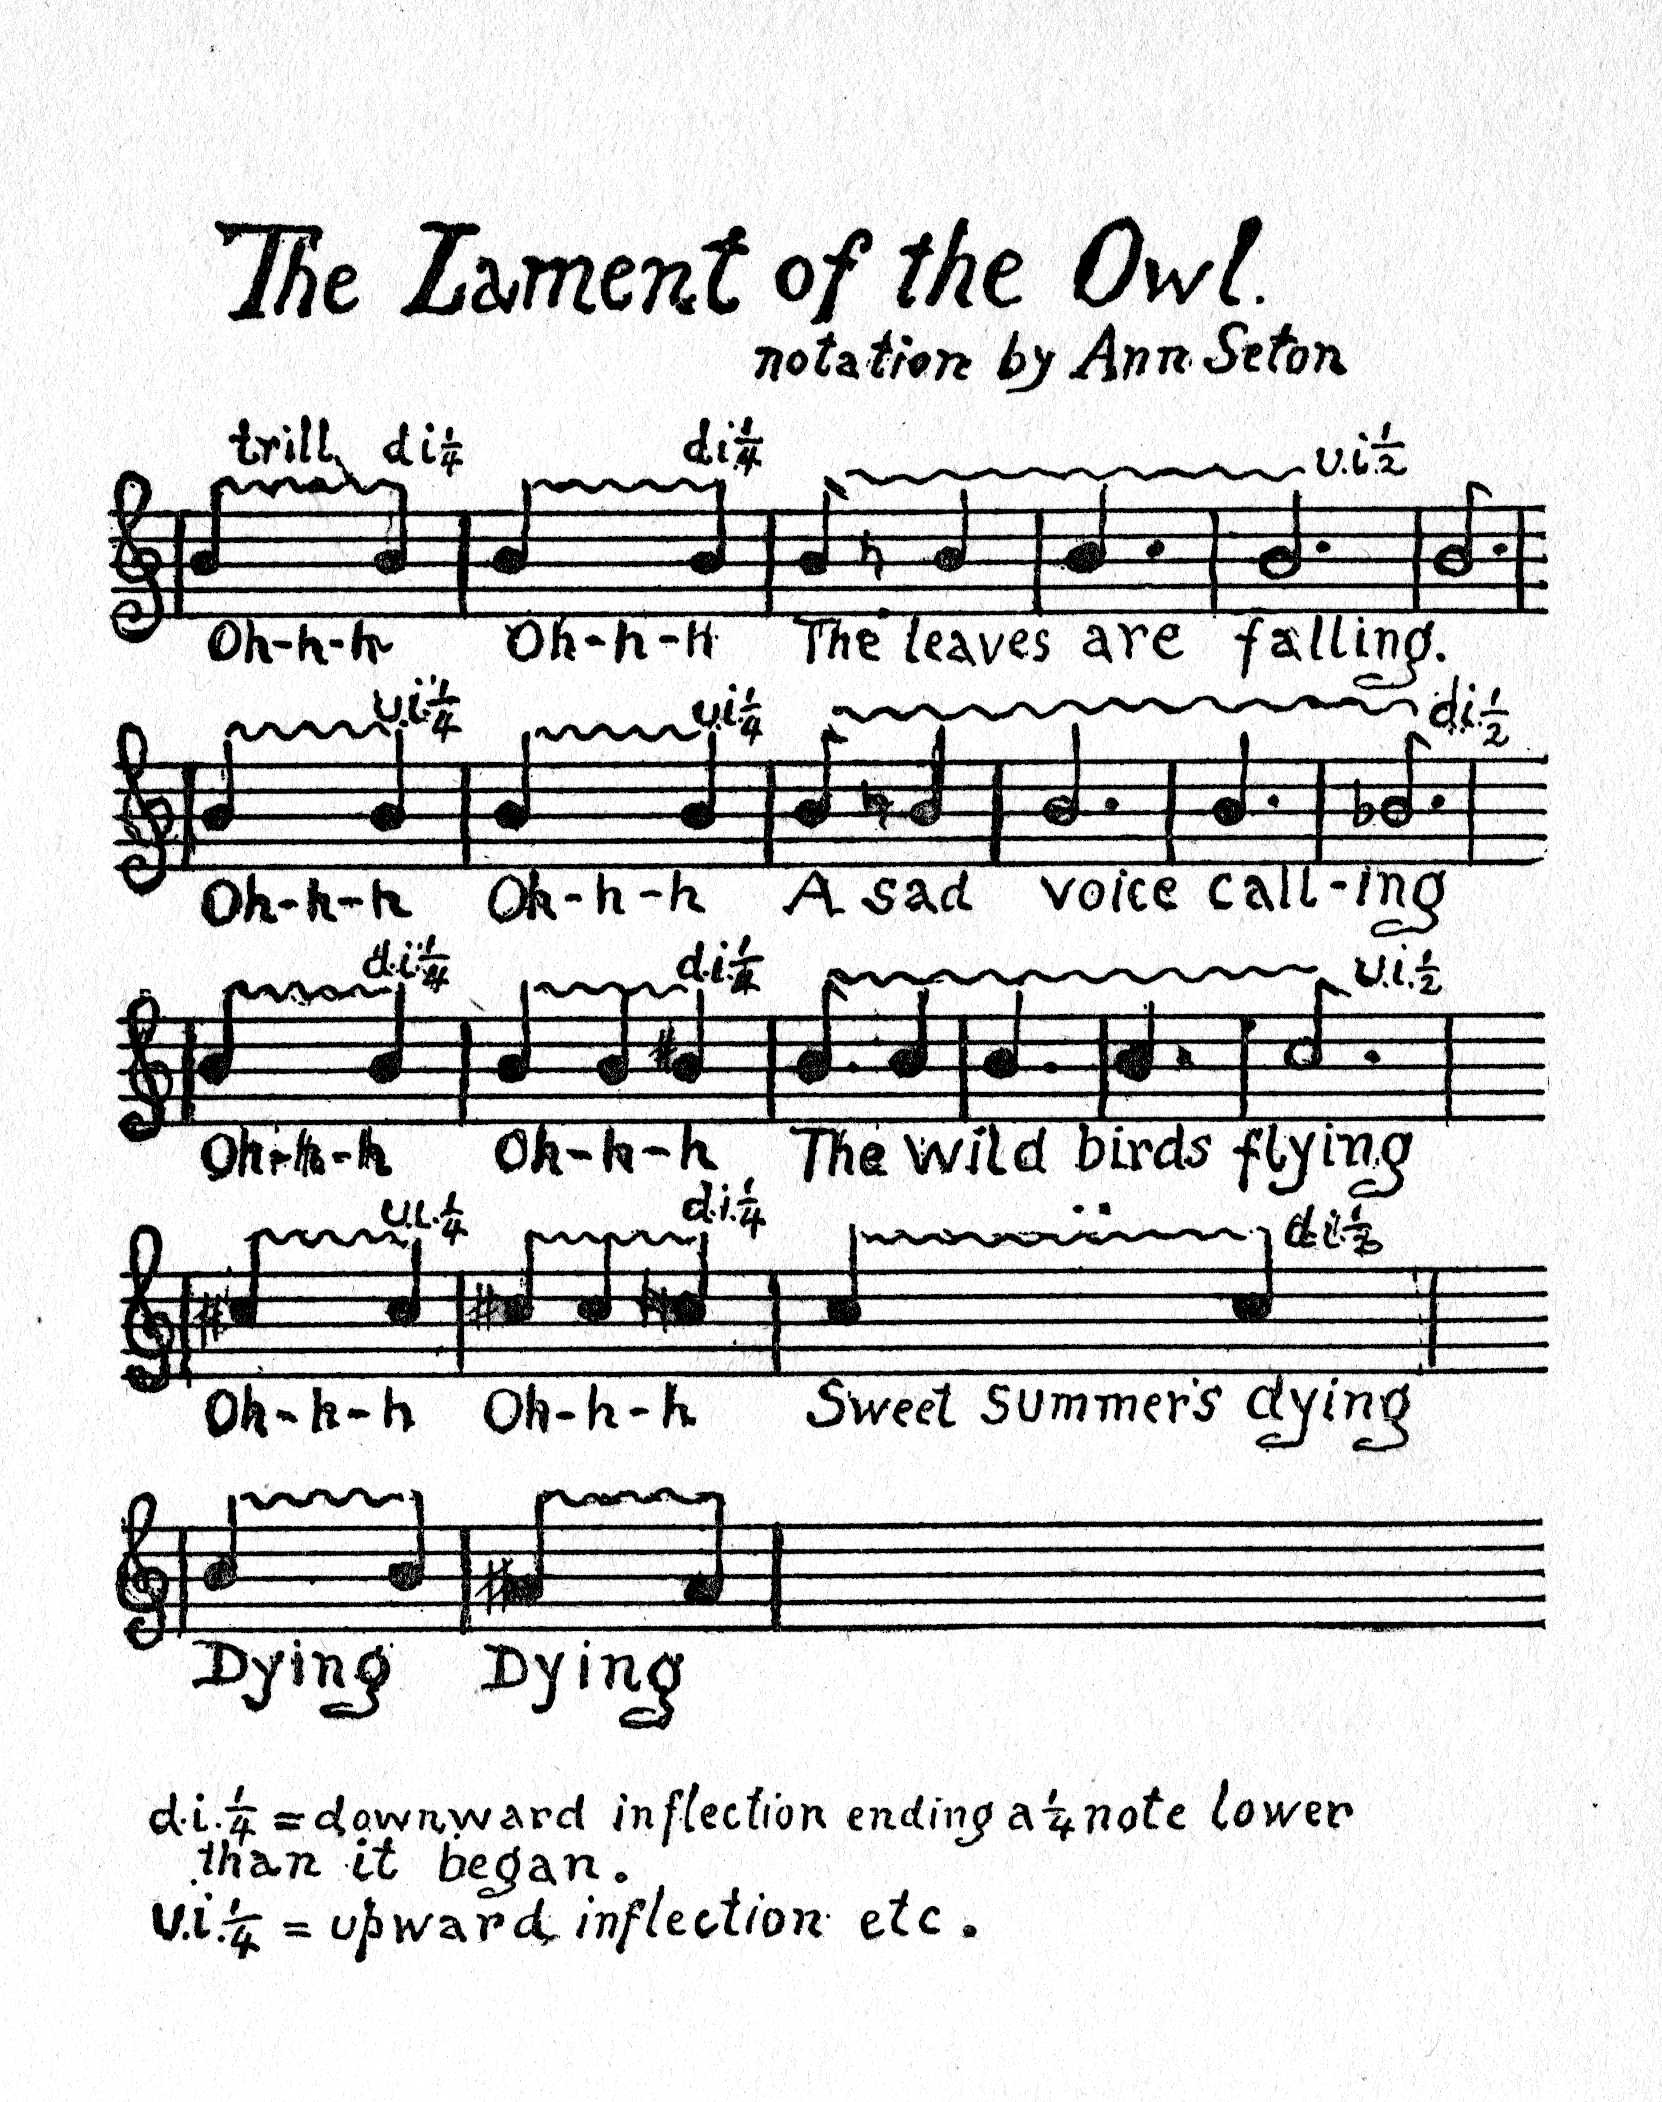 The Lament of the Owl.
notation by Ann Seton
trill di¼ di¼ u.i½
Oh-h-h Oh-h-h The leaves are falling.
u.i¼ u.i¼ d.i.½
Oh-h-h Oh-h-h A sad voice call-ing
d.i.¼ d.i.¼ u.i.½
Oh-h-h Oh-h-h The wild birds flying
u.i.¼ d.i.¼ d.i.½
Oh-h-h Oh-h-h Sweet summer's dying
Dying Dying
d.i.¼ = downward inflection ending a ¼ note lower
than it began.
u.i.¼ = upward inflection etc.